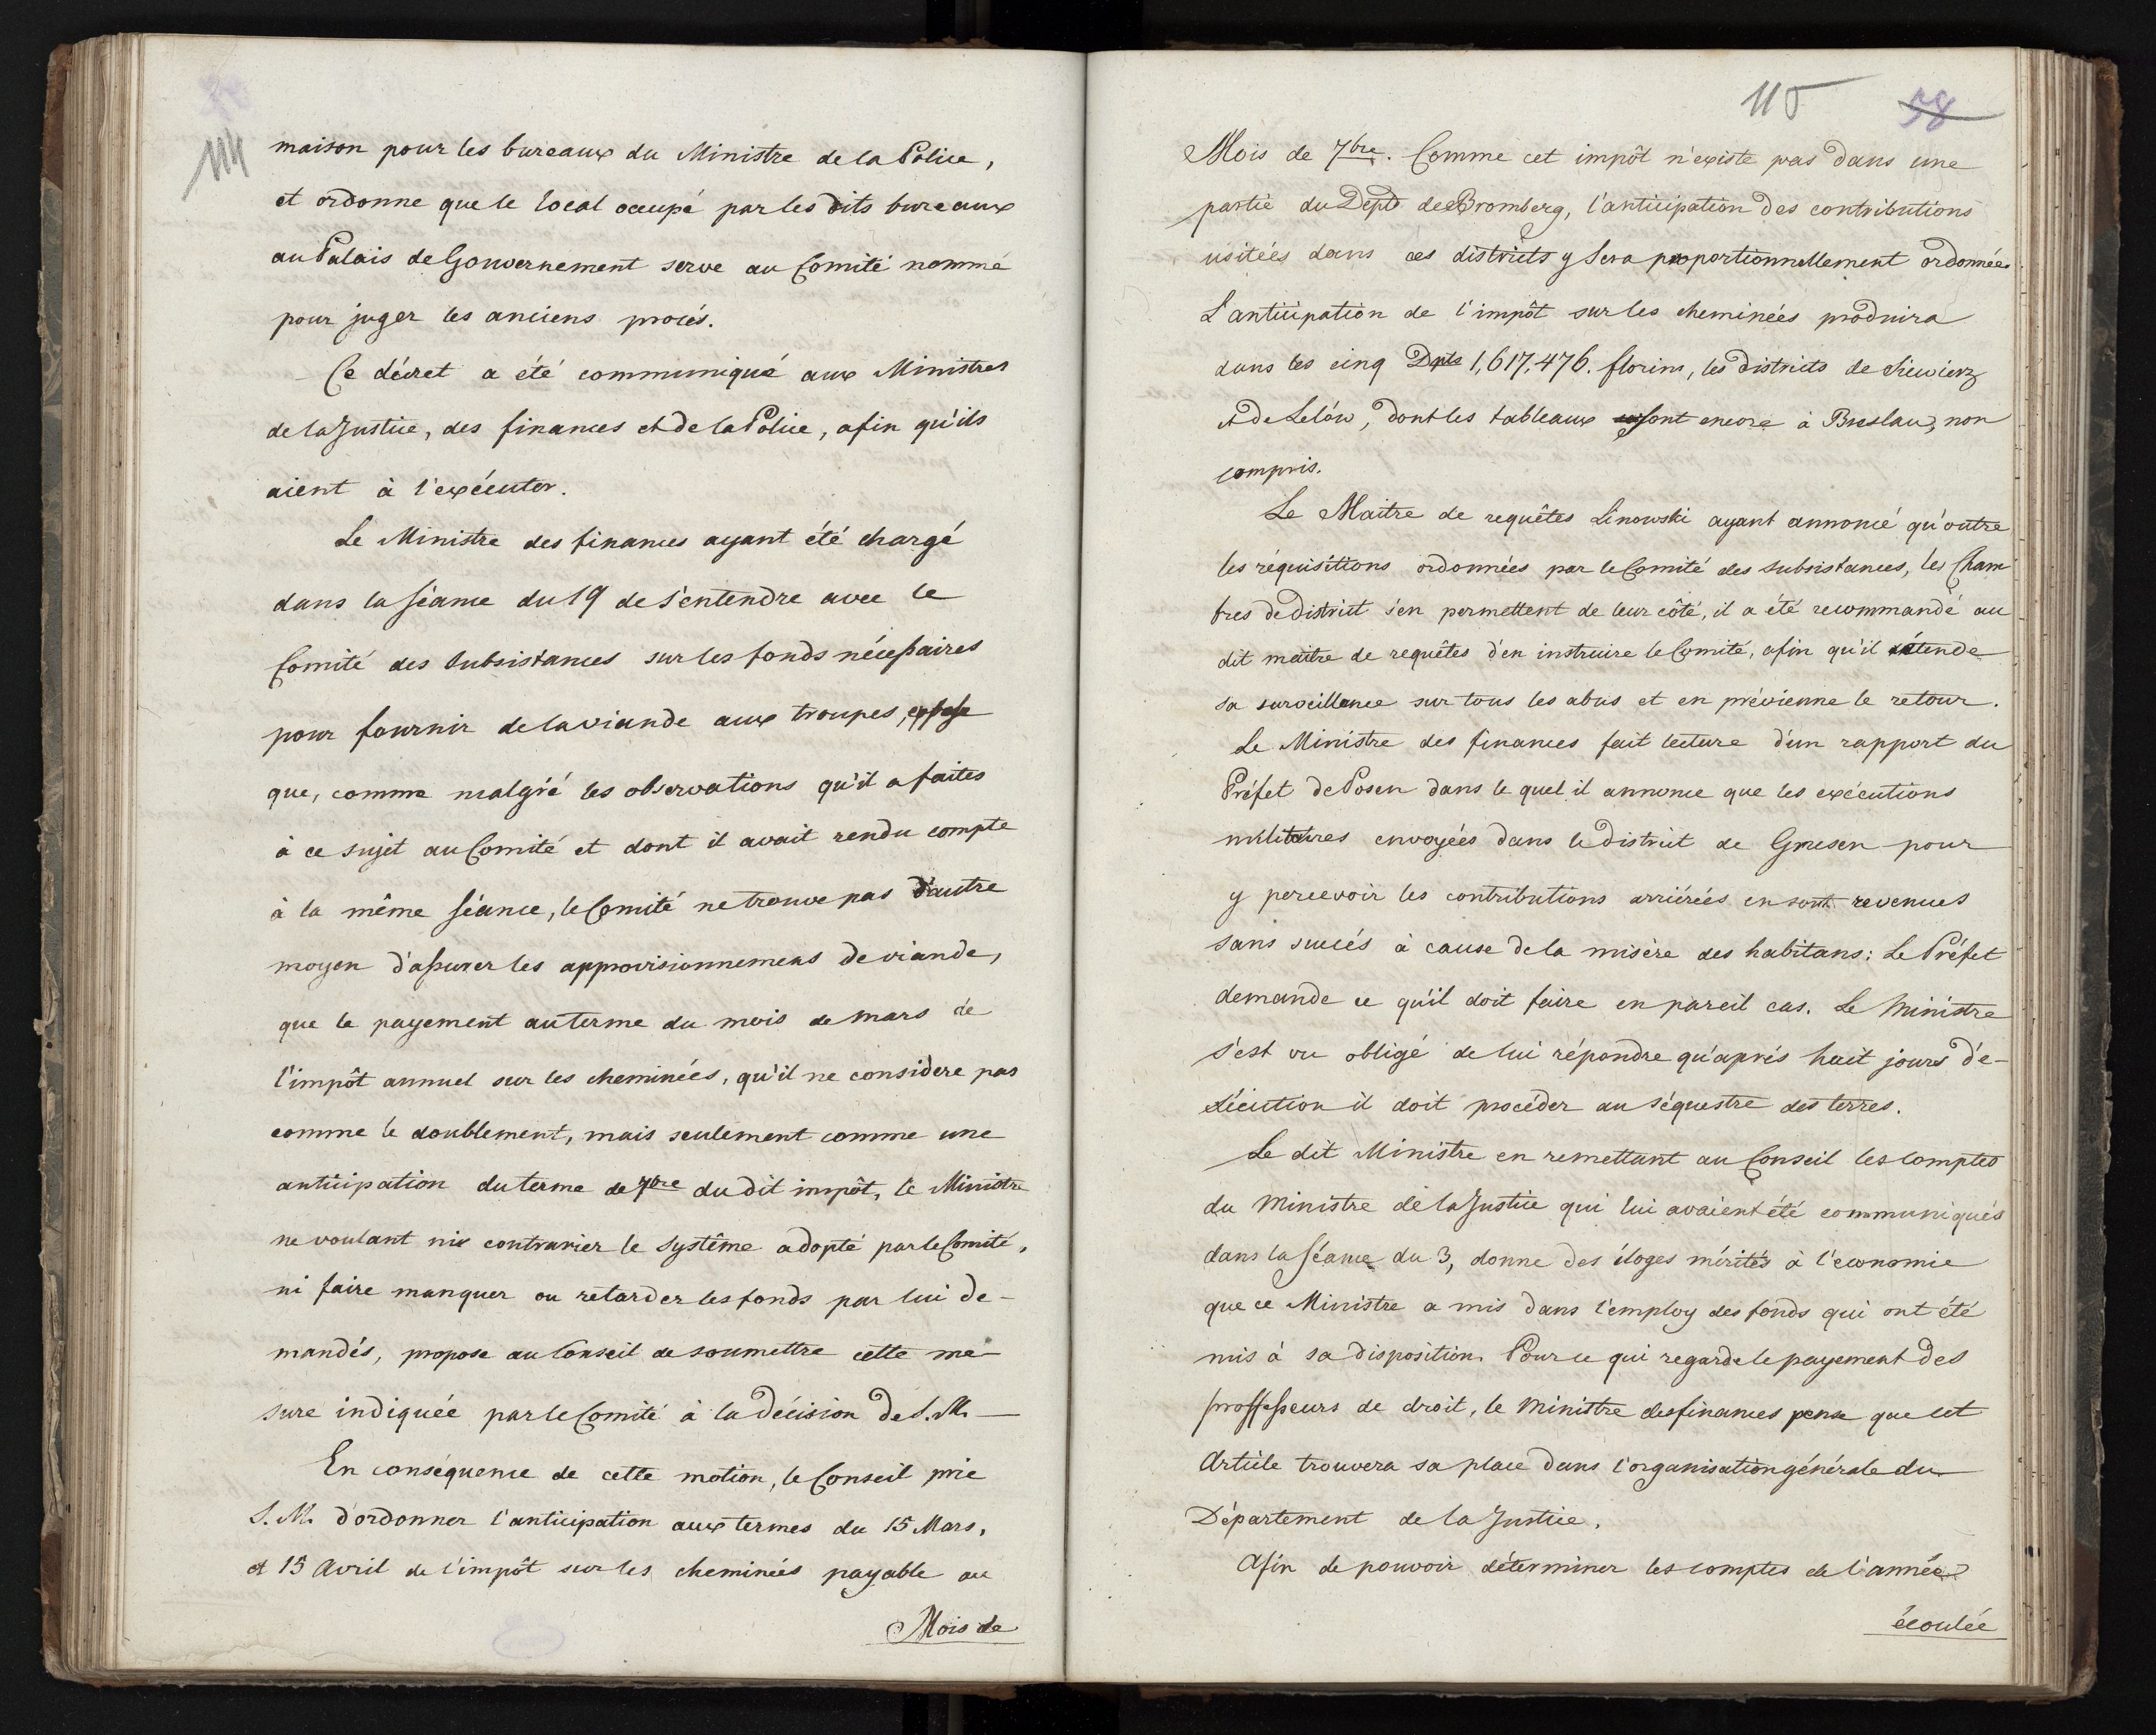 114
maison pour les bureaux du Ministre de la Police,
et ordonne que le local occupé par les dits bureaux
au Palais de Gouvernement serve au Comité nommé
pour juger les anciens procés.
Ce décret a été communiqué aux Ministres
de la Justice, des finances et de la Police, afin qu'ils
aient à l'exécuter.
Le Ministre des finances ayant été chargé
dans la séance du 19 de s'entendre avec le
Comité des Subsistances sur les fonds nécessaires
pour fournir de la viande aux troupes, expose
que, comme malgré les observations qu'il a faites
à ce sujet au Comité et dont il avait rendu compte
à la même séance, le Comité ne trouve pas d'autre
moyen d'assurer les approvisionnemens de viande,
que le payement au terme du mois de mars de
l'impôt annuel sur les cheminées, qu'il ne considere pas
comme le doublement, mais seulement comme une
anticipation du terme de 7bre du dit impôt, le Ministre
ne voulant ni contrarier le systême adopté par le Comité,
ni faire manquer ou retarder les fonds par lui de-
mandés, propose au Conseil de soumettre cette me-
sure indiquée par le Comité à la décision de S. M. —
En conséquence de cette motion, le Conseil prie
S. M. d'ordonner l'anticipation aux termes du 15 Mars,
et 15 Avril de l'impôt sur les cheminées payable au
Mois de
115 58
Mois de 7bre. Comme cet impôt n'existe pas dans une
partie du Dept de Bromberg, l'anticipation des contributions
usitées dans ces districts y sera proportionnellement ordonnée.
L'anticipation de l'impôt sur les cheminées produira
dans les cinq Dpts 1,617,476. florins, les districts de Siewierz
et de Lelów, dont les tableaux sont encore à Breslau, non
compris.
Le Maitre de requêtes Linowski ayant annoncé qu'outre
les réquisitions ordonnées par le Comité des subsistances, les Cham
bres de district s'en permettent de leur côté, il a été recommandé au
dit maitre de requêtes d'en instruire le Comité, afin qu'il étende
sa surveillance sur tous les abus et en prévienne le retour.
Le Ministre des finances fait lecture d'un rapport du
Préfet de Posen dans le quel il annonce que les exécutions
militaires envoyées dans le district de Gnesen pour
y percevoir les contributions arriérées en sont revenues
sans succés à cause de la misère des habitans: Le Préfet
demande ce qu'il doit faire en pareil cas. Le Ministre
s'est vu obligé de lui répondre qu'aprés huit jours d'e-
xécution il doit procéder au séquestre des terres.
Le dit Ministre en remettant au Conseil les comptes
du Ministre de la Justice qui lui avaient été communiqués
dans la séance du 3, donne des éloges mérités à l'economie
que ce Ministre a mis dans l'employ des fonds qui ont été
mis à sa disposition. Pour ce qui regarde le payement des
proffesseurs de droit, le Ministre des finances pense que cet
Article trouvera sa place dans l'organisation générale du
Département de la Justice.
Afin de pouvoir déterminer les comptes de l'année
écoulée